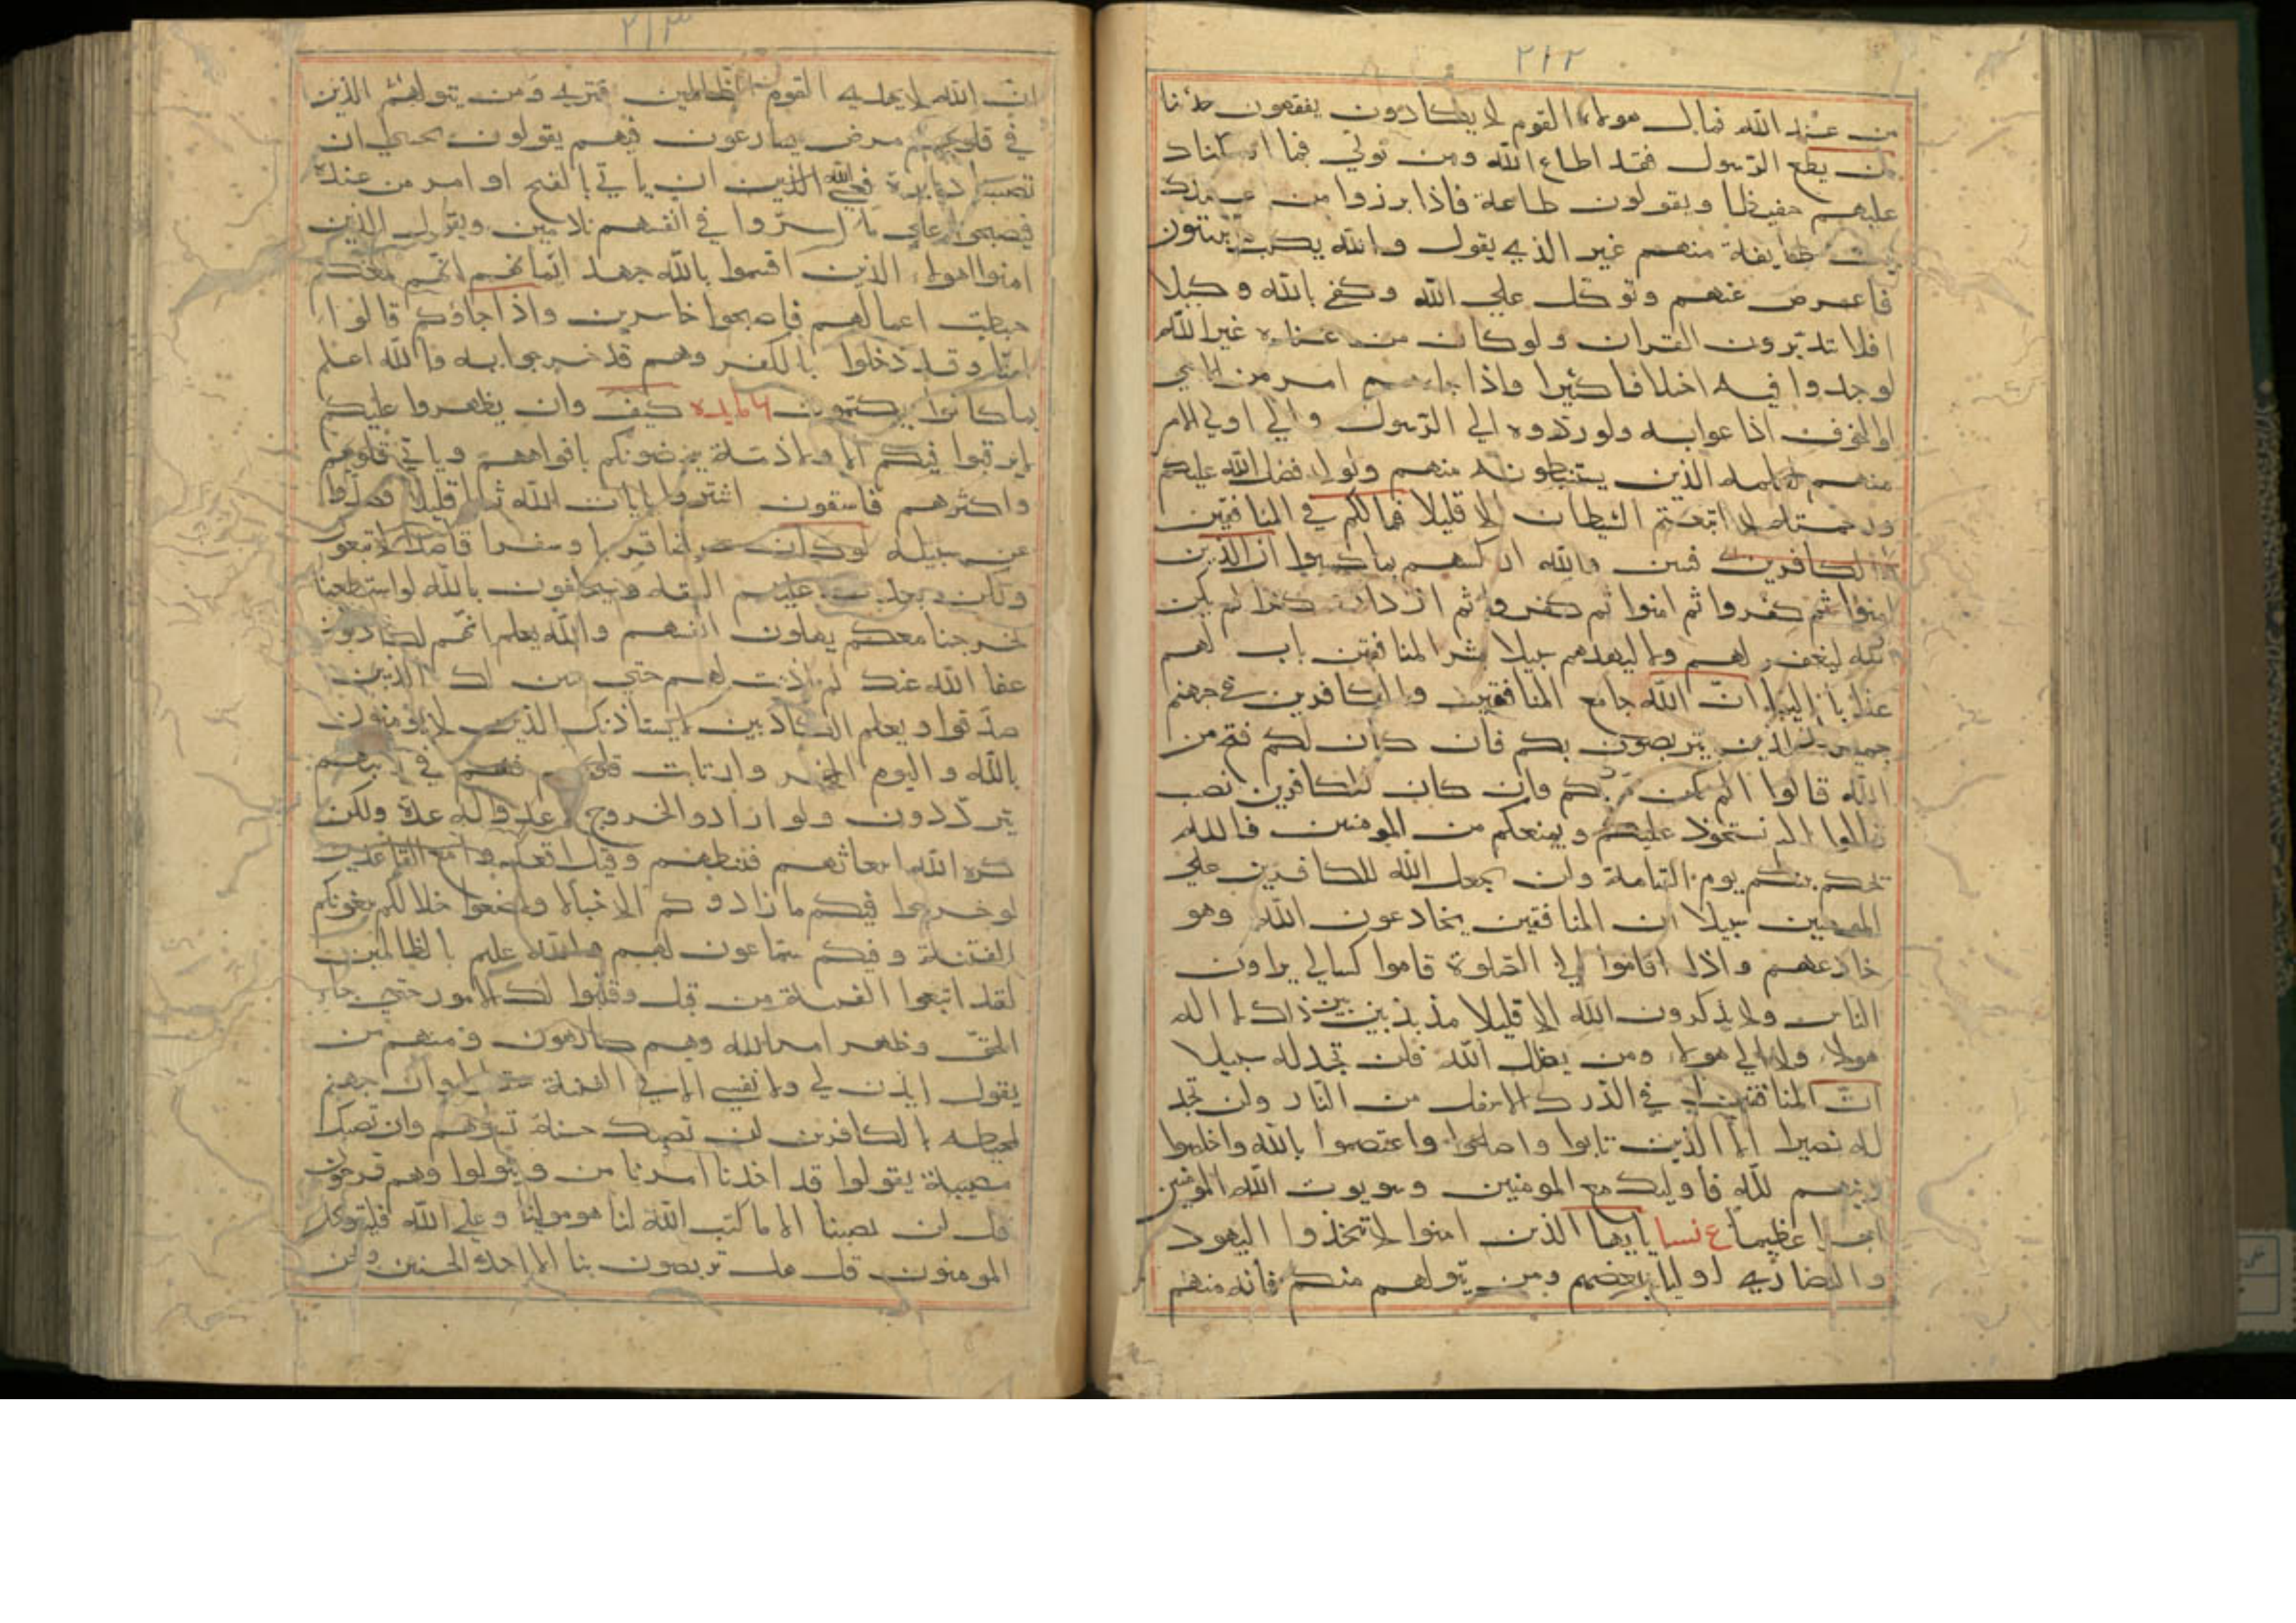 ٢١٢
من عند الله فمال هولاء القوم لا يكادون يفقهون حديثا
من يطع الرسول فقد اطاع الله ومن تولي فما ارسلناك
عليهم حفيظا ويقولون طاعة فاذا برزوا من عندك
بيت طايفة منهم غير الذي يقول والله يكتب ما يبيتون
فاعرض عنهم وتوكل علي الله وكفي بالله وكيلا
افلا تدبرون القران ولو كان من عند غير الله
لوجدوا فيه اختلافا كثيرا واذا جاءهم امر من الامن
او الخوف اذاعوا به ولو ردوه الي الرسول والي اولي الامر
منهم لعلمه الذين يستنبطونه منهم ولولا فضل الله عليكم
ورحمته لاتبعتم الشيطان الا قليلا فمالكم في المنافقين
الكافرين فتين والله اركسهم بما كسبوا ان الذين
امنوا ثم كفروا ثم امنوا ثم كفروا ثم ازدادوا كفرا لم يكن
الله ليغفر لهم ولا ليهديهم سبيلا بشر المنافقين بان لهم
عذابا اليما ان الله جامع المنافقين والكافرين في جهنم
جميعا الذين يتربصون بكم فان كان لكم فتح من
الله قالوا الم نكن معكم وان كان للكافرين نصيب
قالوا الم نستحوذ عليكم ويمنعكم من المومنين فالله
يحكم بينكم يوم القيامة ولن يجعل الله للكافرين علي
المومنين سبيلا ان المنافقين يخادعون الله وهو
خادعهم واذا قاموا الي الصلوة قاموا كسالي يراون
الناس ولا يذكرون الله الا قليلا مذبذبين بين ذلك لا اله
هولاء ولا الي هولاء ومن يضلل الله فلن تجد له سبيلا
ان المنافقين في الدرك الاسفل من النار ولن تجد
له نصيرا الا الذين تابوا واصلحوا واعتصموا بالله واخلصوا
دينهم لله فاوليك مع المومنين وسويوت الله المومنين
اجرا عظيما ع نسا يا ايها الذين امنوا لا تتخذوا اليهود
والنصاري اوليا بعضهم ومن يتولهم منكم فانه منهم
٢١٣
ان الله لا يهدي القوم الظالمين فتري ومن يتولهم الذين
في قلوبهم مرض يسارعون فيهم يقولون نخشي ان
تصيبنا دايرة فعسي الله الذين ان ياتي بالفتح او امر من عنده
فيصبحوا علي ما اسروا في انفسهم نادمين ويقول الذين
امنوا اهولاء الذين اقسموا بالله جهد ايمانهم انهم معكم
حبطت اعمالهم فاصبحوا خاسرين واذا جاؤكم قالوا
امنا وقد دخلوا بالكفر وهم قد خرجوا به والله اعلم
بما كانوا يكتمون مايده كيف وان يظهروا عليكم
لا يرقبوا فيكم الا ولا ذمة يرضونكم بافواههم وتابي قلوبهم
واكثرهم فاسقون اشتروا بايات الله ثمنا قليلا فصدوا
عن سبيله لو كان عرضا قريبا وسفرا قاصدا لاتبعوك
ولكن بعدت عليهم الشقة وسيحلفون بالله لو استطعنا
لخرجنا معكم يهلكون انفسهم والله يعلم انهم لكاذبون
عفا الله عنك لم اذنت لهم حتي يتبين لك الذين
صدقوا ويعلم الكاذبين لا يستاذنك الذين لا يومنون
بالله واليوم الاخر وارتابت قلوبهم فهم في ريبهم
يترددون ولو ارادوا الخروج لاعدوا له عدة ولكن
كره الله انبعاثهم فثبطهم وقيل اقعدوا مع القاعدين
لو خرجوا فيكم ما زادوكم الا خبالا ولاوضعوا خلالكم يبغونكم
الفتنة وفيكم سماعون لهم والله عليم بالظالمين
لقد ابتغوا الفتنة من قبل وقلبوا لك الامور حتي جاء
الحق وظهر امر الله وهم كارهون ومنهم من
يقول ايذن لي ولا تفتني الا في الفتنة سقطوا وان جهنم
لمحيطة بالكافرين ان تصبك حسنة تسوهم وان تصبك
مصيبة يقولوا قد اخذنا امرنا من ويتولوا وهم فرحون
قل لن يصيبنا الا ما كتب الله لنا هو مولينا وعلي الله فليتوكل
المومنون قل هل تربصون بنا الا احدي الحسنين ونحن